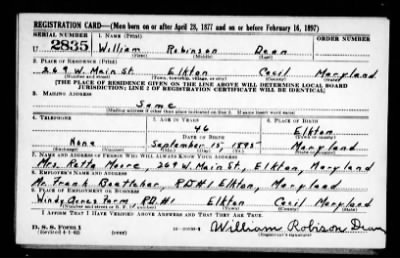 REGISTRATION CARD—(Men born on or after April 28, 1877 and on or before February 16, 1897)
SERIAL NUMBER 1. NAME (Print) ORDER NUMBER
U 2835 William Robinson Dean
(First) (Middle) (Last)
2. PLACE OF RESIDENCE (Print)
269 W. Main St. Elkton Cecil Maryland
(Number and street) (Town, township, village, or city) (County) (State)
[THE PLACE OF RESIDENCE GIVEN ON THE LINE ABOVE WILL DETERMINE LOCAL BOARD
JURISDICTION; LINE 2 OF REGISTRATION CERTIFICATE WILL BE IDENTICAL]
3. MAILING ADDRESS
Same
[Mailing address if other than place indicated on line 2. If same insert word same]
4. TELEPHONE 5. AGE IN YEARS 6. PLACE OF BIRTH
46 Elkton
DATE OF BIRTH (Town or county)
None September 15, 1895 Maryland
(Exchange) (Number) (Mo.) (Day) (Yr.) (State or country)
7. NAME AND ADDRESS OF PERSON WHO WILL ALWAYS KNOW YOUR ADDRESS
Mrs. Retta Moore, 269 W. Main St., Elkton, Maryland
8. EMPLOYER'S NAME AND ADDRESS
Mr. Frank R.D.#1 Elkton, Maryland
9. PLACE OF EMPLOYMENT OR BUSINESS
Windy Acres Farm, R.D.#1 Elkton Cecil Maryland
(Number and street or R. F. D. number) (Town) (County) (State)
I AFFIRM THAT I HAVE VERIFIED ABOVE ANSWERS AND THAT THEY ARE TRUE.
D. S. S. Form 1 William Robison Dean
(Revised 4-1-42) (over) (Registrant's signature)